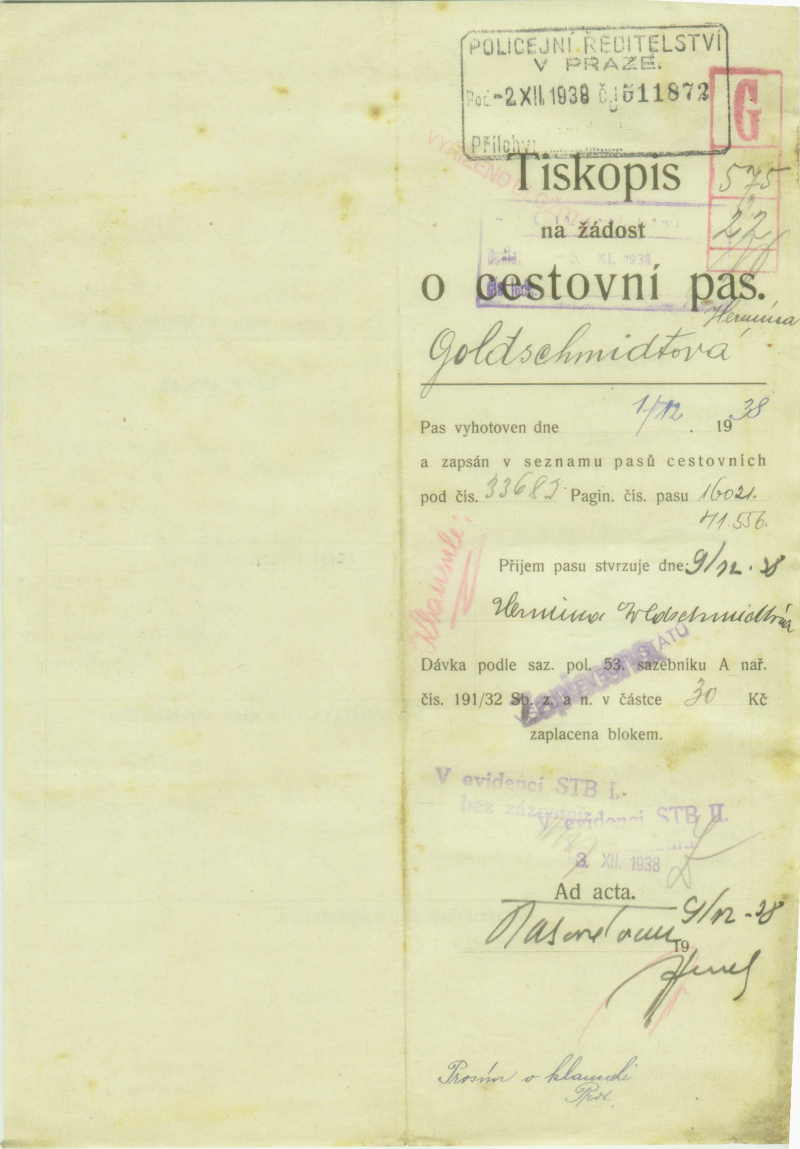 POLICEJNÍ ŘEDITELSTVÍ
V PRAZE.
-2 XII. 1938 Čj 511872
Přílohy:
G
Tiskopis
575
na žádost
22
XI. 1938
o cestovní pas.
Hermína
Goldschmidtová
Pas vyhotoven dne 1/12. 1938
a zapsán v seznamu pasů cestovních
pod čís. 33683 Pagin. čís. pasu 16021.
71.556.
Příjem pasu stvrzuje dne 9/12.38
Hermina Goldschmidtová
Dávka podle saz. pol. 53. sazebníku A nař.
čís. 191/32 Sb. z. a n. v částce 30 Kč
zaplacena blokem.
V evidenci STB I.
bez záznamu
V evidenci STB II.
3. XII. 1938
Ad acta.
9/12-38
19
Prosím o